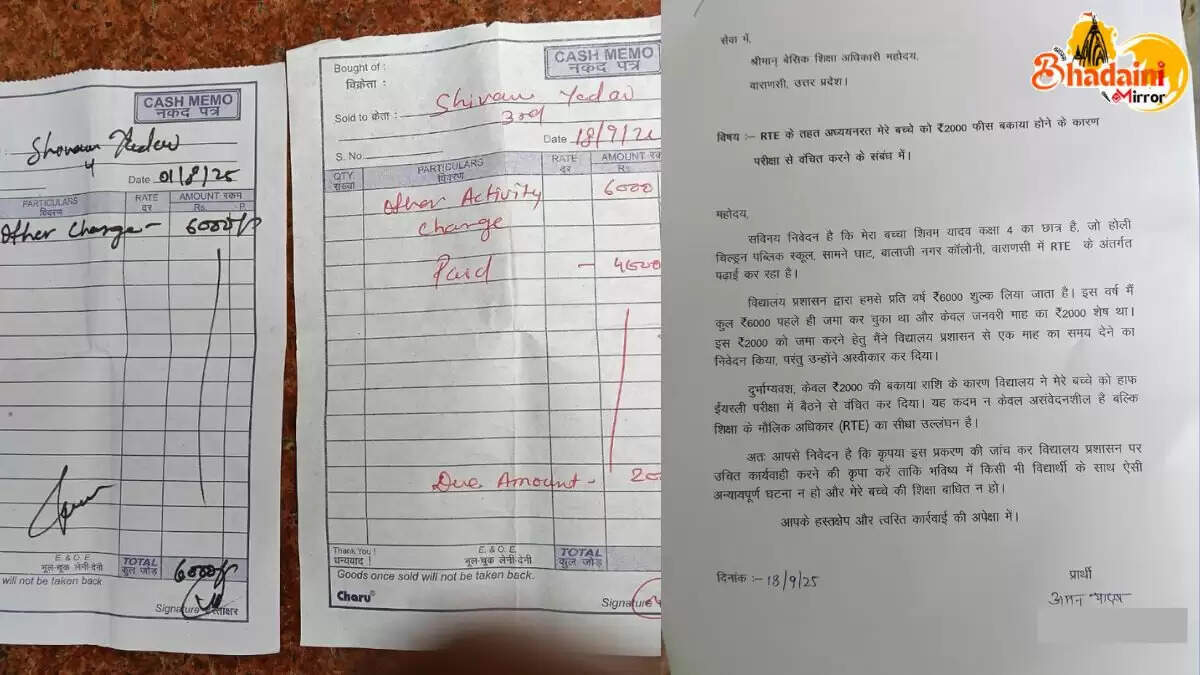 CASH MEMO
नकद पत्र
Shivam Yadav
4
Date 01/8/25
PARTICULARS
विवरण
RATE
दर
AMOUNT रकम
Rs. P.
Other Charge - 6000/
E. & O. E.
भूल-चूक लेनी-देनी
TOTAL
कुल जोड़
6000/
will not be taken back
Signature हस्ताक्षर
CASH MEMO
नकद पत्र
Bought of :
विक्रेता :
Sold to क्रेता :
Shivam Yadav
3rd
Date 18/9/2
S. No.
QTY.
संख्या
PARTICULARS
विवरण
RATE
दर
AMOUNT रकम
Rs.
Other Activity 6000
Charge
Paid -
Due Amount - 20
Thank You !
धन्यवाद !
E. & O. E.
भूल-चूक लेनी-देनी
TOTAL
कुल जोड़
Goods once sold will not be taken back.
Charu®
Signature
सेवा में,
श्रीमान् बेसिक शिक्षा अधिकारी महोदय,
वाराणसी, उत्तर प्रदेश।
विषय :- RTE के तहत अध्ययनरत मेरे बच्चे को ₹2000 फीस बकाया होने के कारण
परीक्षा से वंचित करने के संबंध में।
महोदय,
सविनय निवेदन है कि मेरा बच्चा शिवम यादव कक्षा 4 का छात्र है, जो होली
चिल्ड्रन पब्लिक स्कूल, सामने घाट, बालाजी नगर कॉलोनी, वाराणसी में RTE के अंतर्गत
पढाई कर रहा है।
विद्यालय प्रशासन द्वारा हमसे प्रति वर्ष ₹6000 शुल्क लिया जाता है। इस वर्ष मैं
कुल ₹6000 पहले ही जमा कर चुका था और केवल जनवरी माह का ₹2000 शेष था।
इस ₹2000 को जमा करने हेतु मैंने विद्यालय प्रशासन से एक माह का समय देने का
निवेदन किया, परंतु उन्होंने अस्वीकार कर दिया।
दुर्भाग्यवश, केवल ₹2000 की बकाया राशि के कारण विद्यालय ने मेरे बच्चे को हाफ
ईयरली परीक्षा में बैठने से वंचित कर दिया। यह कदम न केवल असंवेदनशील है बल्कि
शिक्षा के मौलिक अधिकार (RTE) का सीधा उल्लंघन है।
अतः आपसे निवेदन है कि कृपया इस प्रकरण की जांच कर विद्यालय प्रशासन पर
उचित कार्यवाही करने की कृपा करें ताकि भविष्य में किसी भी विद्यार्थी के साथ ऐसी
अन्यायपूर्ण घटना न हो और मेरे बच्चे की शिक्षा बाधित न हो।
आपके हस्तक्षेप और त्वरित कार्रवाई की अपेक्षा में।
दिनांक :- 18/9/25
प्रार्थी
अमन यादव
Bhadaini
Mirror